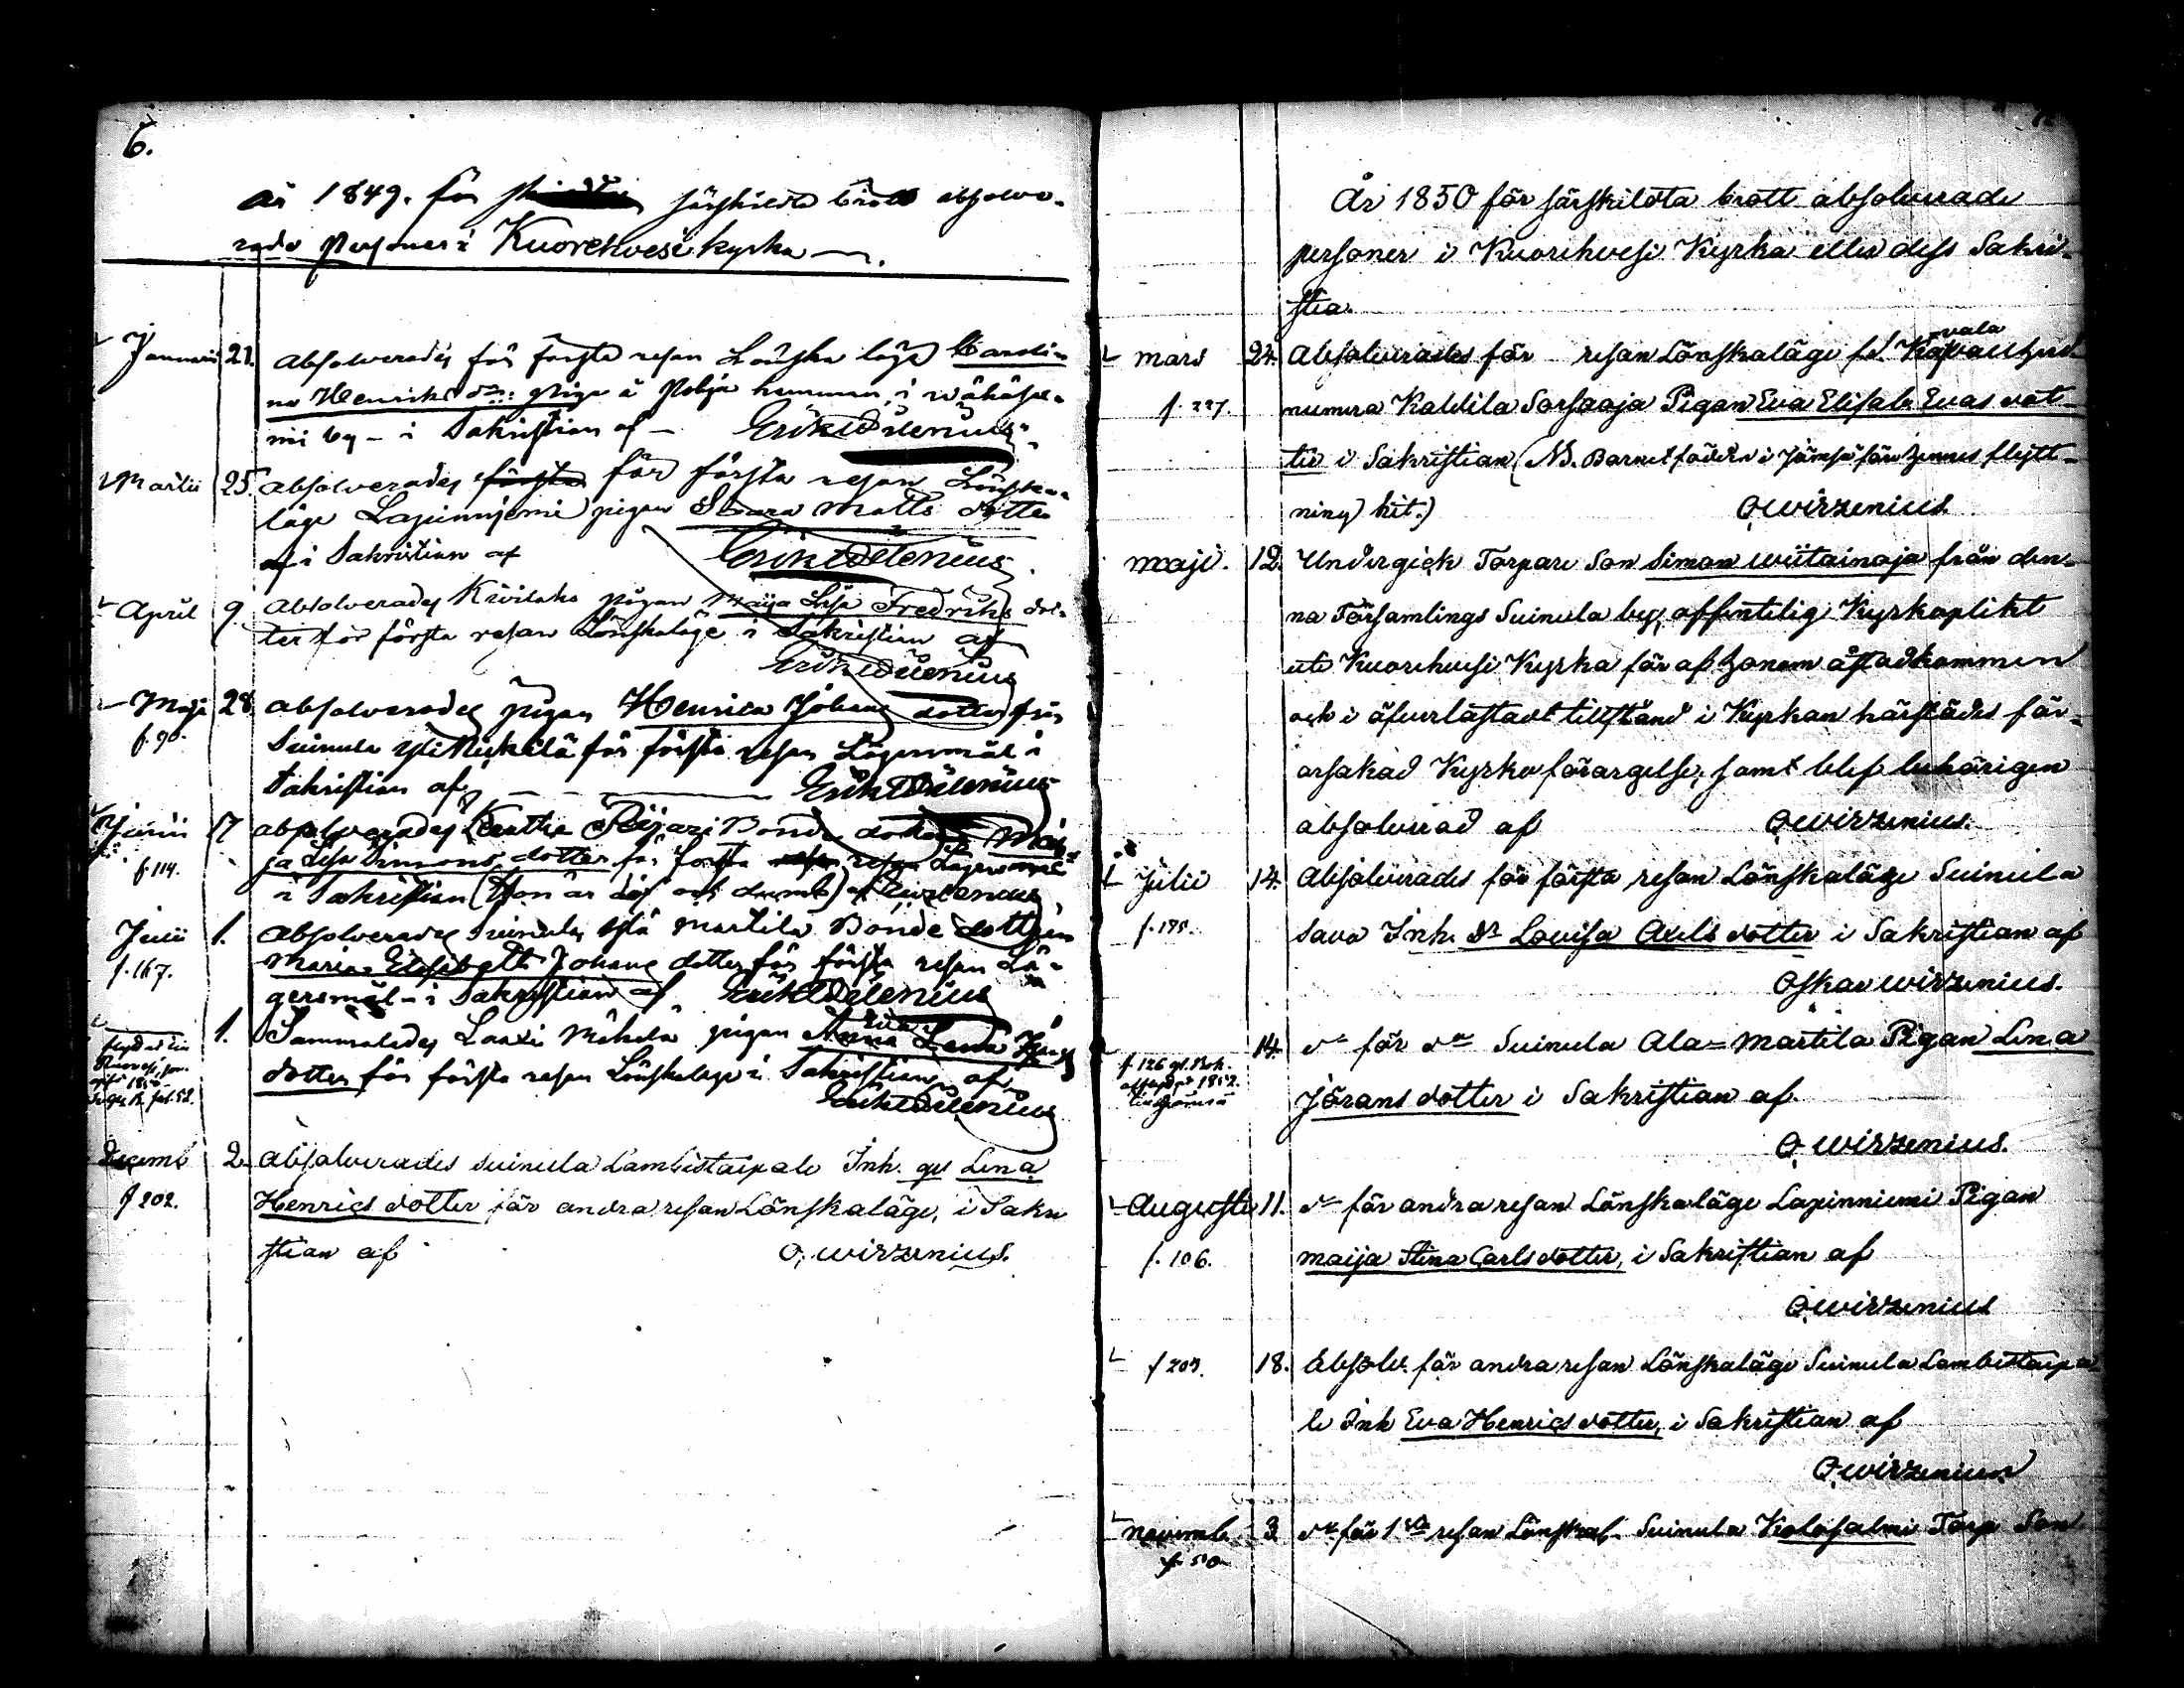 6.
År 1849. för särskilda brott absolve-
rade Personer i Kuorehvesi kyrka
Januari 21. Absolverades för första resan Lönska läge Caroli-
na Henriksdr: piga å Pohja hemman, i Wähäsal-
mi by - i Sakristian af - Erik Delenius
Martii 25. Absolverades första för första resan Lönska-
läge Lapinnjemi pigan Saara Matts dotter
af i Sakristian af Erik Delenius
April 9. Absolverades pigan Maija Lisa Fredriks dot-
ter för första resan Lönskaläge i Sakristian af
Erik Delenius
Maji 28. Absolverades pigan Henrica Johans dotter från
f. 90. Suinula för första resan Lägersmål i
Sakristian af Erik Delenius
Junii 17 absolverades Bonde dotter Mai-
f. 114. ja Lisa Simons dotter för första resan Lägersmål
i Sakristian (Hon är döf och dumb) af
Julii 1. Absolverades Suinula Martila Bonde dottren
f. 167. Maria Elisabeth Johans dotter för första resan Lä-
gersmål - i Sakristian af Erik Delenius
1. Sammaledes pigan Lena
dotter för första resan Lönskaläge i Sakristian af
Erik Delenius
Decemb 2. Absolverades Suinula Lambistaipale Inh. Lena
f 202. Henrics dotter för andra resan Lönskaläge, i Sakri
stian af O, Wirzenius.
År 1850 för särskildta brott absolverade
personer i Kuorehvesi Kyrka eller dess Sakri-
stia.
Mars 24. Absolverades för resan Lönskaläge f.d.
f. 227. numera Pigan Eva Elisab. Evas dot-
ter i Sakristian (NB. Barnet föddes i Jämsä före hennes flytt-
ning hit.) O, Wirzenius.
Maji. 12. Undergick Torpare Son Simon Wiitainoja från den-
na Församlings Suinula by, offentelig Kyrkoplikt
uti Kuorehvesi Kyrka för af honom åstadkommen
och i öfverlastadt tillstånd i Kyrkan härstädes för-
orsakad Kyrko förargelse, samt blef behörigen
absolverad af O, Wirzenius.
Julii 14. Absolverades för första resan Lönskaläge Suinula
f. 195. Sava Inh. dr Lovisa Axels dotter i Sakristian af
Oskar Wirzenius.
14. do för do Suinula Ala=Martila Pigan Lena
Jörans dotter i Sakristian af
O, Wirzenius.
Augusti 11. do för andra resan Lönskaläge Lapinniemi Pigan
f. 106. Maija Stina Carls dotter, i Sakristian af
O, Wirzenius
f 203. 18. Absolv. för andra resan Lönskaläge Suinula Lambistaipa-
le Inh Eva Henrics dotter, i Sakristian af
O, Wirzenius
Novemb. 3. do för 1sta resan Lönskal. Suinula Kolosalmi Torp Son
f. 50